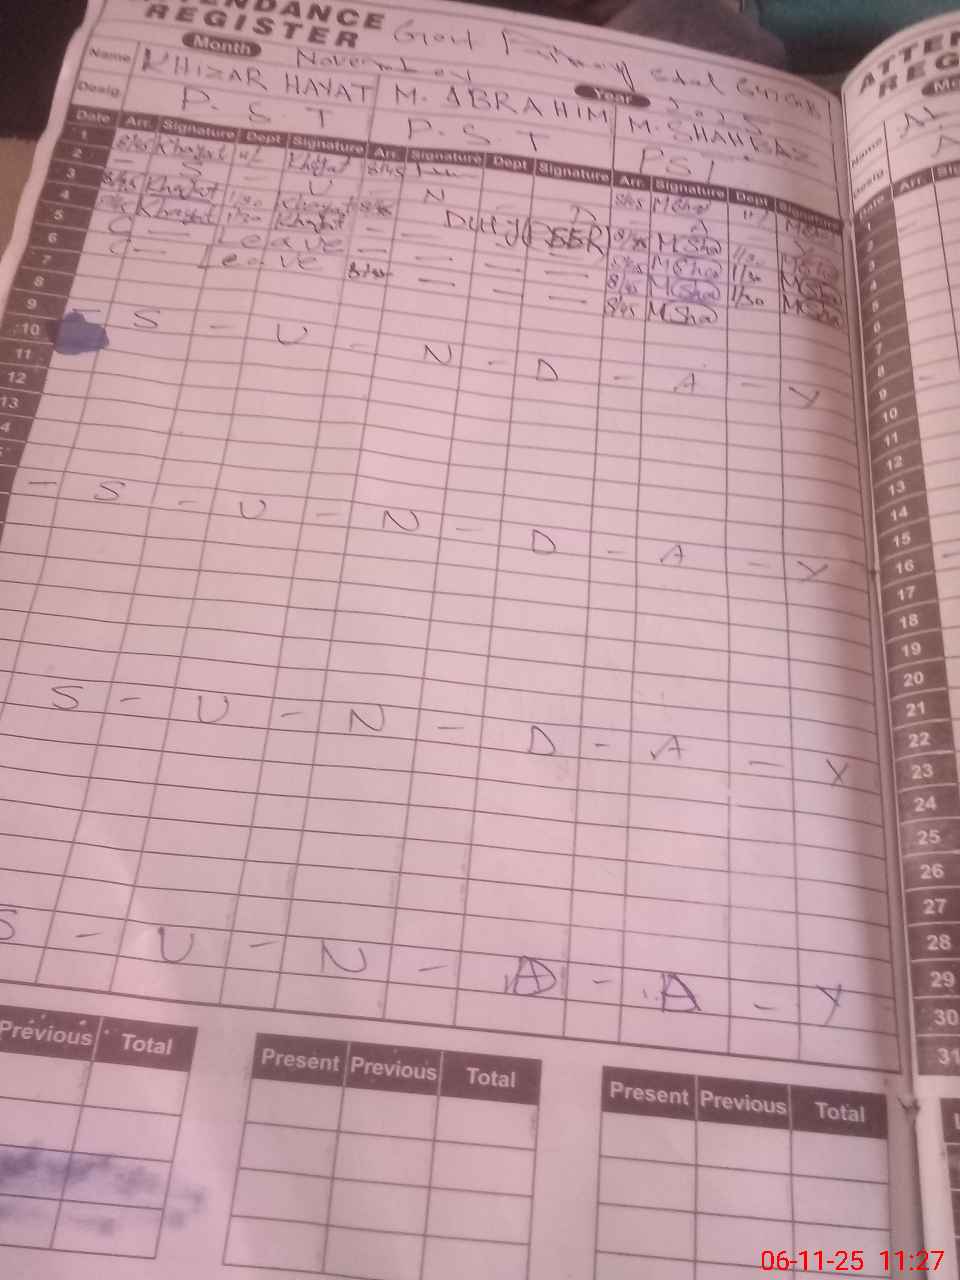 ATTENDANCE
REGISTER
Month November Year 2025
Name KHIZAR HAYAT M. ABRAHIM M. SHAHBAZ
Desig. P. S. T P. S. T PST
Date Arr. Signature Dept Signature Arr. Signature Dept Signature Arr. Signature Dept Signature
1 8/45 Khayat Khayat 8/45 8/45 MSha
2 — S U N D A Y
3 8/45 Khayat 1/30 Khayat 8/45 Duty (BBR) 8/45 MSha 1/30 MSha
4 8/45 Khayat 1/30 Khayat 8/45 MSha 1/30 MSha
5 C — Leave — — — — 8/45 MSha 1/30 MSha
6 C — Leave 8/45 — — — 8/45 MSha
7
8
9 — S - U - N - D - A - Y
10
11
12
13
— S - U - N - D - A - Y
S - U - N - D - A - Y
S - U - N - D - A - Y
Previous Total Present Previous Total Present Previous Total
ATTEN
REG
Name
Desig.
Date Arr.
1
2
3
4
5
6
7
8
9
10
11
12
13
14
15
16
17
18
19
20
21
22
23
24
25
26
27
28
29
30
31
06-11-25 11:27